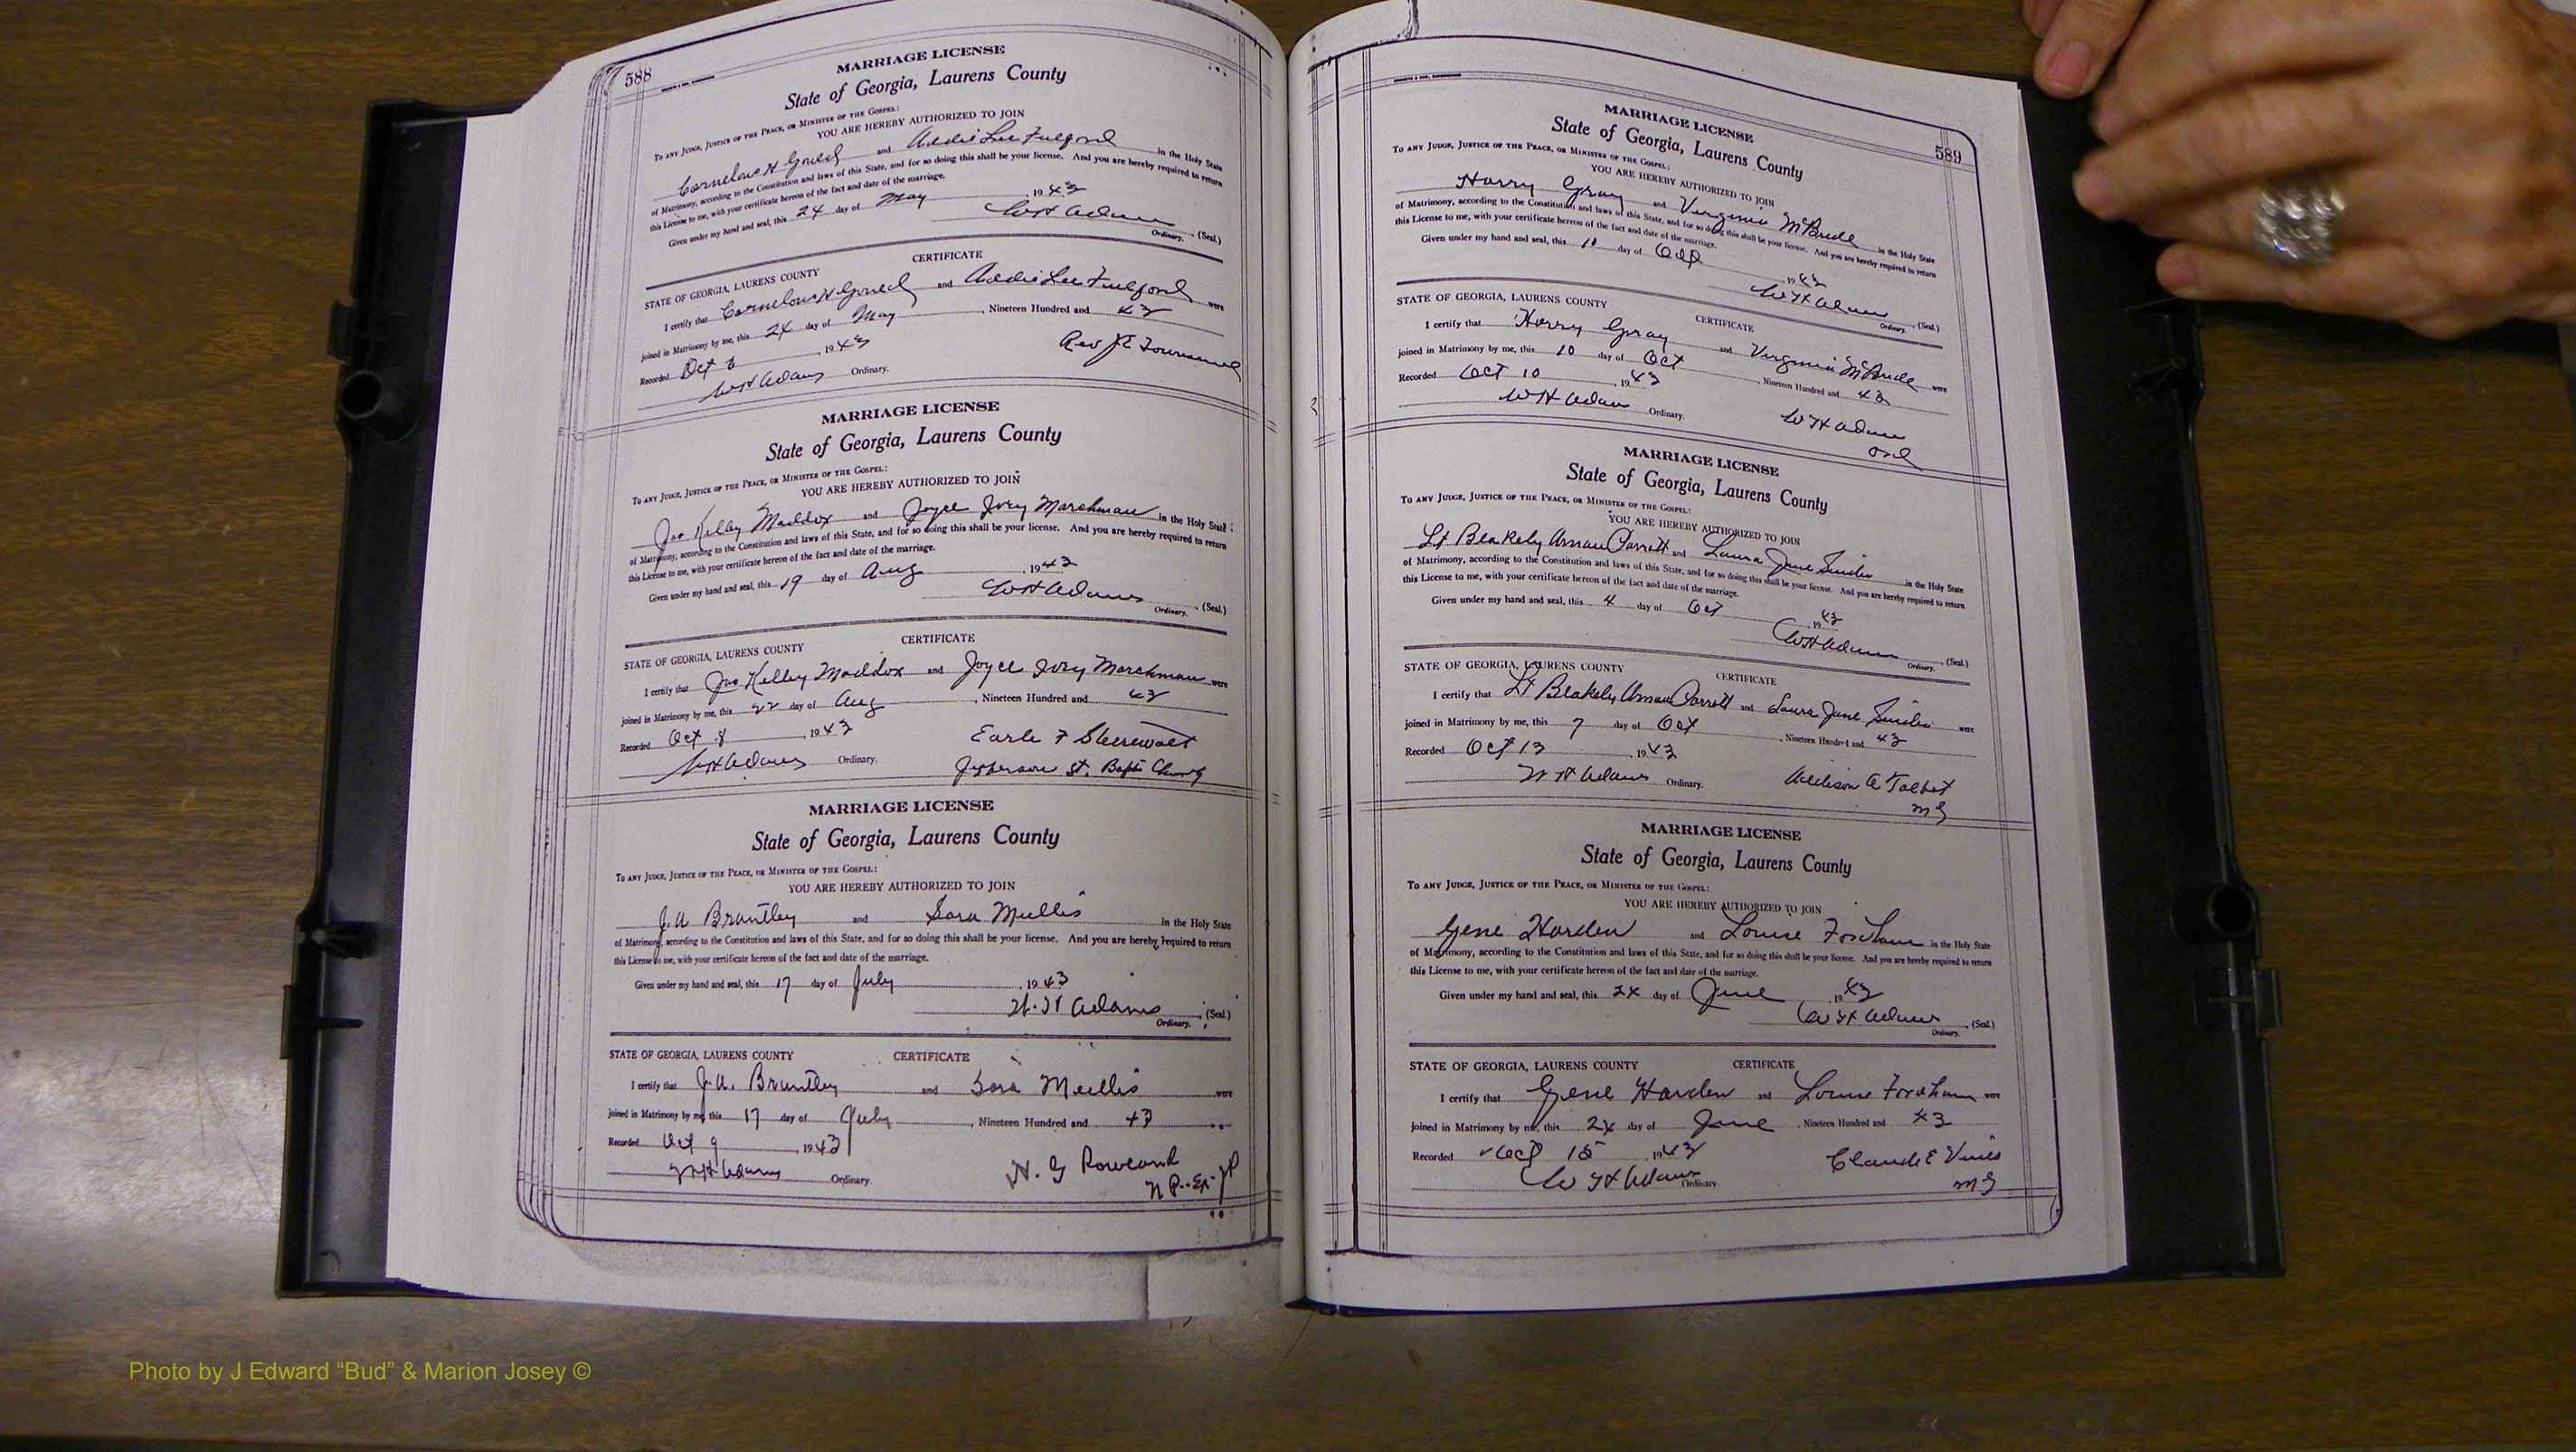 588
MARRIAGE LICENSE
State of Georgia, Laurens County
To any Judge, Justice of the Peace, or Minister of the Gospel:
YOU ARE HEREBY AUTHORIZED TO JOIN
and Addie Lee Fulford in the Holy State
of Matrimony, according to the Constitution and laws of this State, and for so doing this shall be your license. And you are hereby required to return
this License to me, with your certificate hereon of the fact and date of the marriage.
Given under my hand and seal, this 24 day of May 1943
W H Adams
Ordinary. (Seal.)
CERTIFICATE
STATE OF GEORGIA, LAURENS COUNTY
I certify that and Addie Lee Fulford were
joined in Matrimony by me, this 24 day of May, Nineteen Hundred and 43
Recorded Oct 1943
Rev J E Townsend
W H Adams Ordinary.
MARRIAGE LICENSE
State of Georgia, Laurens County
To any Judge, Justice of the Peace, or Minister of the Gospel:
YOU ARE HEREBY AUTHORIZED TO JOIN
Jno Kelley Maddox and Joyce Ivey Marchman in the Holy State
of Matrimony, according to the Constitution and laws of this State, and for so doing this shall be your license. And you are hereby required to return
this License to me, with your certificate hereon of the fact and date of the marriage.
Given under my hand and seal, this 19 day of Aug 1943
W H Adams
Ordinary. (Seal.)
CERTIFICATE
STATE OF GEORGIA, LAURENS COUNTY
I certify that Jno Kelley Maddox and Joyce Ivey Marchman were
joined in Matrimony by me, this 22 day of Aug, Nineteen Hundred and 43
Recorded Oct 8 1943
Earle F
W H Adams Ordinary.
Jefferson St. Bapt Church
MARRIAGE LICENSE
State of Georgia, Laurens County
To any Judge, Justice of the Peace, or Minister of the Gospel:
YOU ARE HEREBY AUTHORIZED TO JOIN
J.A Brantley and Sara Mullis in the Holy State
of Matrimony, according to the Constitution and laws of this State, and for so doing this shall be your license. And you are hereby required to return
this License to me, with your certificate hereon of the fact and date of the marriage.
Given under my hand and seal, this 17 day of July 1943
W. H Adams
Ordinary. (Seal.)
STATE OF GEORGIA, LAURENS COUNTY CERTIFICATE
I certify that J.A. Brantley and Sara Mullis were
joined in Matrimony by me, this 17 day of July, Nineteen Hundred and 43
Recorded Oct 9 1943
H. G Rowland
W H Adams Ordinary.
N P. Ex-JP
589
MARRIAGE LICENSE
State of Georgia, Laurens County
To any Judge, Justice of the Peace, or Minister of the Gospel:
YOU ARE HEREBY AUTHORIZED TO JOIN
Harry Gray and Virginia McBride in the Holy State
of Matrimony, according to the Constitution and laws of this State, and for so doing this shall be your license. And you are hereby required to return
this License to me, with your certificate hereon of the fact and date of the marriage.
Given under my hand and seal, this 10 day of Oct 1943
W H Adams
Ordinary. (Seal.)
STATE OF GEORGIA, LAURENS COUNTY CERTIFICATE
I certify that Harry Gray and Virginia McBride were
joined in Matrimony by me, this 10 day of Oct, Nineteen Hundred and 43
Recorded Oct 10 1943
W H Adams Ordinary.
W H Adams
Ord
MARRIAGE LICENSE
State of Georgia, Laurens County
To any Judge, Justice of the Peace, or Minister of the Gospel:
YOU ARE HEREBY AUTHORIZED TO JOIN
Lt Blakely Parrott and Laura Jane in the Holy State
of Matrimony, according to the Constitution and laws of this State, and for so doing this shall be your license. And you are hereby required to return
this License to me, with your certificate hereon of the fact and date of the marriage.
Given under my hand and seal, this 4 day of Oct 1943
W H Adams
Ordinary. (Seal.)
STATE OF GEORGIA, LAURENS COUNTY CERTIFICATE
I certify that Lt Blakely Parrott and Laura Jane were
joined in Matrimony by me, this 7 day of Oct, Nineteen Hundred and 43
Recorded Oct 13 1943
W H Adams Ordinary.
Addison A Talbot
M G
MARRIAGE LICENSE
State of Georgia, Laurens County
To any Judge, Justice of the Peace, or Minister of the Gospel:
YOU ARE HEREBY AUTHORIZED TO JOIN
Gene Harden and Louise Fordham in the Holy State
of Matrimony, according to the Constitution and laws of this State, and for so doing this shall be your license. And you are hereby required to return
this License to me, with your certificate hereon of the fact and date of the marriage.
Given under my hand and seal, this 24 day of June 1943
W H Adams
Ordinary. (Seal.)
STATE OF GEORGIA, LAURENS COUNTY CERTIFICATE
I certify that Gene Harden and Louise Fordham were
joined in Matrimony by me, this 24 day of June, Nineteen Hundred and 43
Recorded Oct 15 1943
Claude E Vines
W H Adams Ordinary
M G
Photo by J Edward “Bud” & Marion Josey ©